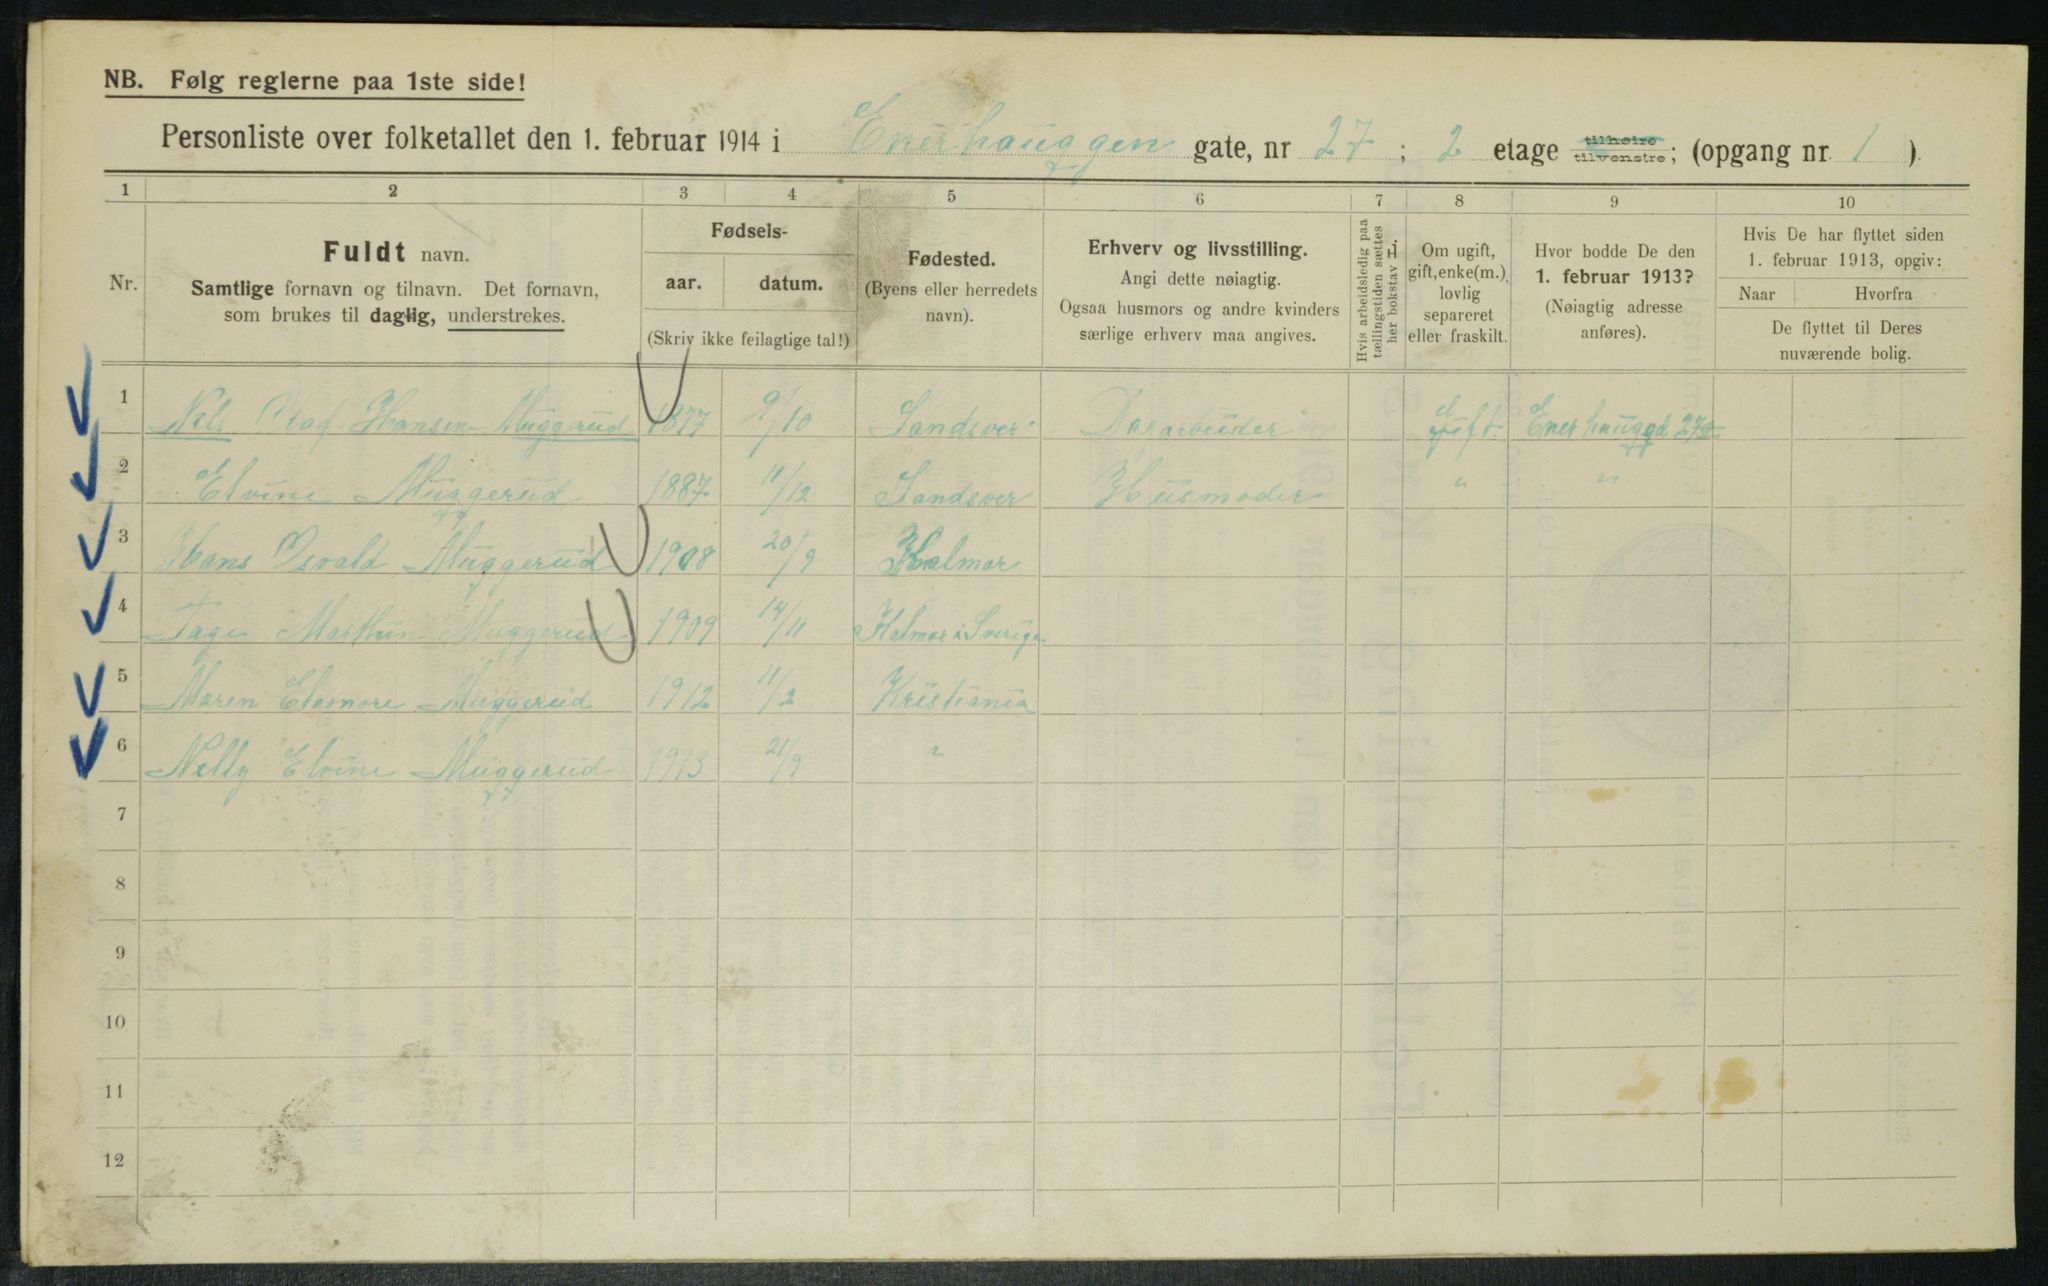 NB. Følg reglerne paa 1ste side!
Personliste over folketallet den 1. februar 1914 i Enerhauggen gate, nr 27 ; 2 etage tilhøire tilvenstre; (opgang nr. 1 ).
1 2 3 4 5 6 7 8 9 10
Nr.
Fuldt navn.
Samtlige fornavn og tilnavn. Det fornavn,
som brukes til daglig, understrekes.
Fødsels-
aar. datum.
(Skriv ikke feilagtige tal!)
Fødested.
(Byens eller herredets
navn).
Erhverv og livsstilling.
Angi dette nøiagtig.
Ogsaa husmors og andre kvinders
særlige erhverv maa angives.
Hvis arbeidsledig paa
tællingstiden sættes
her bokstav H.
Om ugift,
gift, enke(m.),
lovlig
separeret
eller fraskilt.
Hvor bodde De den
1. februar 1913?
(Nøiagtig adresse
anføres).
Hvis De har flyttet siden
1. februar 1913, opgiv:
Naar Hvorfra
De flyttet til Deres
nuværende bolig.
1 Nels Olaf Hansen Muggerud 1877 9/10 Sandsver Dagarbeider gift. Enerhauggd. 27
2 Elvine Muggerud 1887 11/12 Sandsver Husmoder " "
3 Hans Osvald Muggerud 1908 20/9 Kalmar
4 Tage Marthin Muggerud 1909 14/11 Kalmar i Sverige
5 Maren Eleonore Muggerud 1912 11/2 Kristiania
6 Nelly Elvine Muggerud 1913 21/9 "
7
8
9
10
11
12